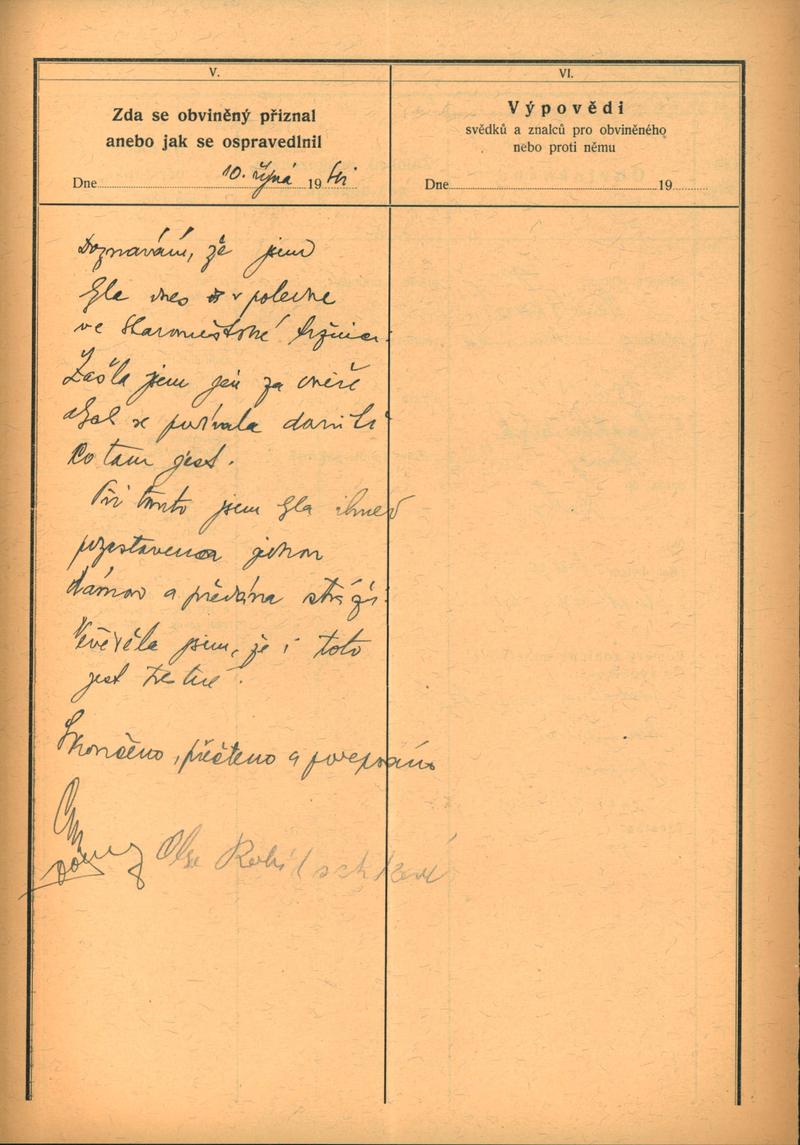 V.
Zda se obviněný přiznal
anebo jak se ospravedlnil
Dne 10. října 19 41
Doznávám, že jsem
byla dnes v poledne
ve Staroměstské tržnici.
Zašla jsem jen za dveře
abych se podívala
co tam jest.
Při tomto jsem byla ihned
pozastavena
dámou a předána stráži.
Nevěděla jsem, že i toto
jest trestné.
Skončeno, přečteno a podepsáno
Olga
VI.
Výpovědi
svědků a znalců pro obviněného
nebo proti němu
Dne 19